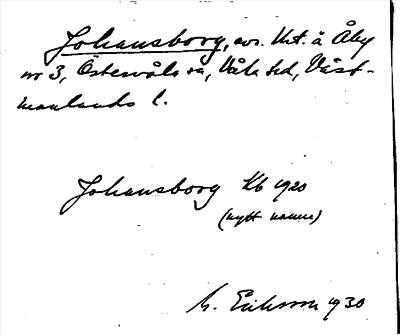 Johansborg, avs. lht. å Åby
nr 3, Östervåla sn, Våla hd, Väst-
manlands l.
Johansborg Kb 1920
(nytt namn)
M. Eriksson 1930